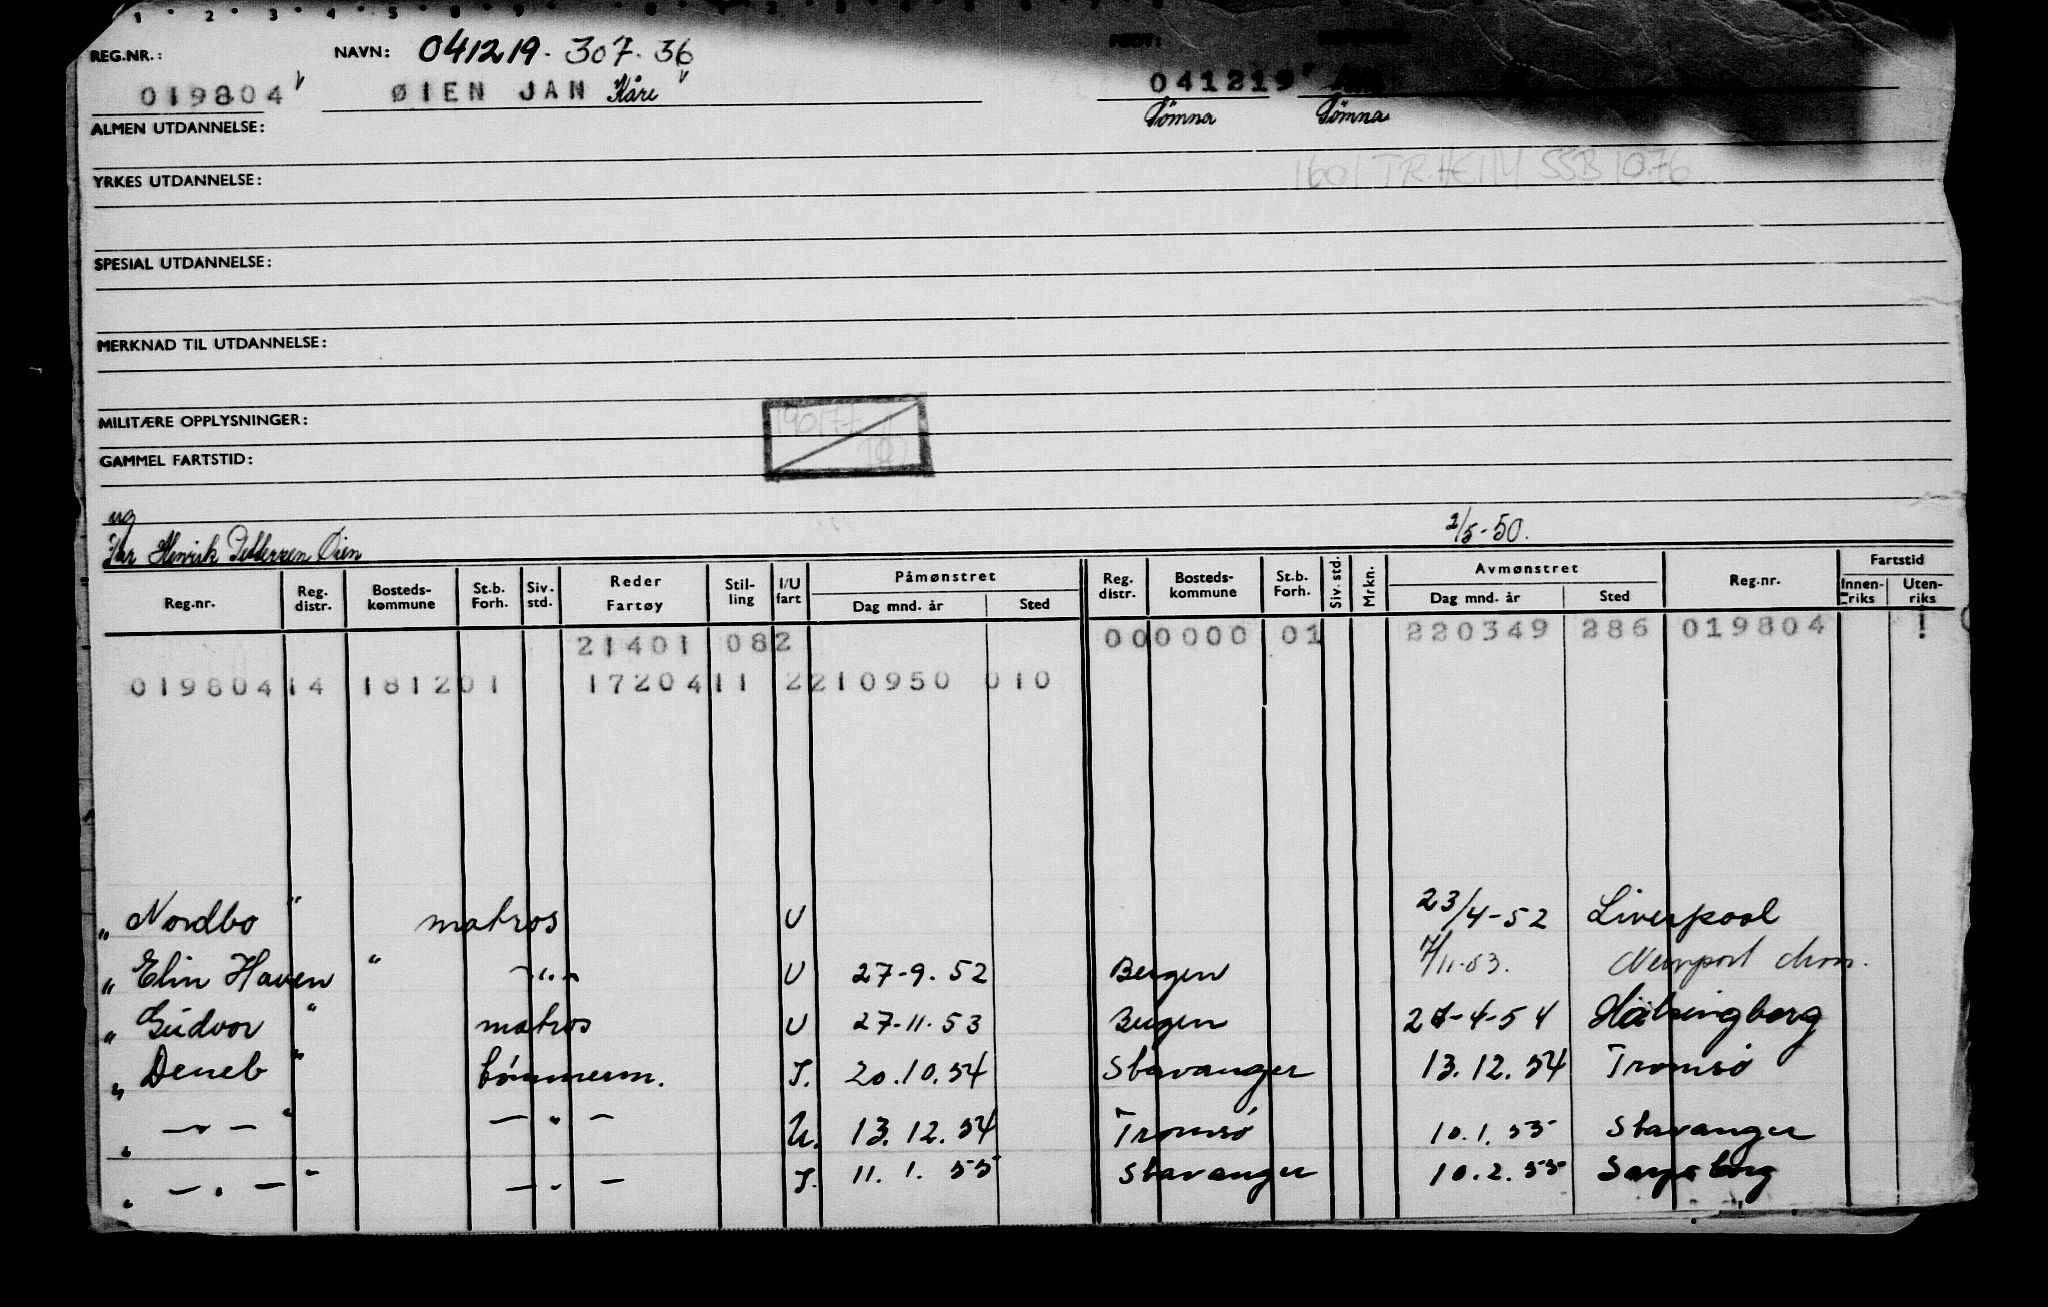 1 2 3 4 5 6 7 8 9
REG.NR.: NAVN: 041219-307-36 FØDT:
019804 ØIEN JAN Kåre 041219
Sømna Sømna
ALMEN UTDANNELSE:
1601 TR.HEIM SSB 1076
YRKES UTDANNELSE:
SPESIAL UTDANNELSE:
MERKNAD TIL UTDANNELSE:
MILITÆRE OPPLYSNINGER:
190177
GAMMEL FARTSTID:
ug
Far Henrik Pettersen Øien 2/5-50.
Reg.nr. Reg. distr. Bosteds-kommune St.b. Forh. Siv. std. Reder Fartøy Stil-ling I/U fart Påmønstret Dag mnd. år Sted Reg. distr. Bosteds-kommune St.b. Forh. Siv. std. Mrkn. Avmønstret Dag mnd. år Sted Reg.nr. Fartstid Innen-riks Uten-riks
21401 082 000000 01 220349 286 019804 !
019804 14 1812 01 172041 1 2 210950 010
" Nordbo " matros U 23/4-52 Liverpool
" Elin Haven " -"- U 27-9.52 Bergen 7/11-53. Newport Mon.
" Gudvor " matros U 27-11-53 Bergen 27-4-54 Hälsingborg
" Deneb " tömmerm. I. 20.10.54 Stavanger 13.12.54 Tromsö
" -"- " -"- U. 13.12.54 Tromsö 10.1.55 Stavanger
" -"- " -"- I. 11.1.55 Stavanger 10.2.55 Sarpsborg